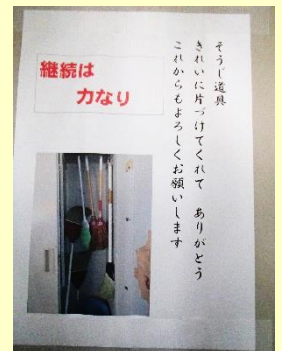 そうじ道具
きれいに片づけてくれて　ありがとう
これからもよろしくお願いします
継続は
力なり